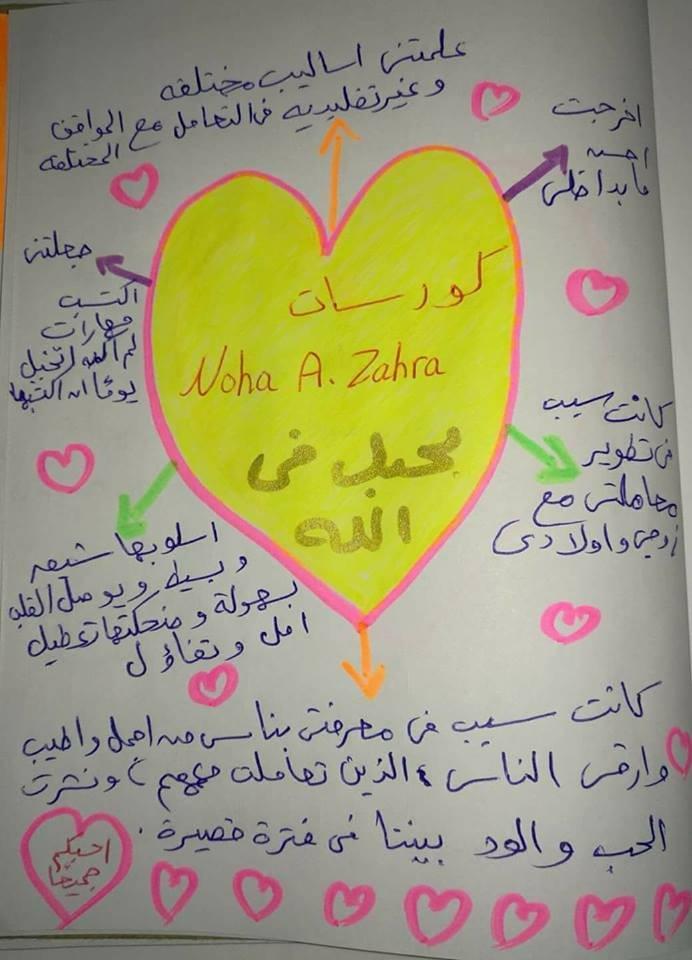 علمتنى اساليب مختلفه
وغير تقليديه فى التعامل مع المواقف
المختلفه
اخرجت
احسن
ما بداخلى
جعلتنى
اكتسب
مهارات
لم اكن اتخيل
يومًا ان اكتسبها
كورسات
Noha A. Zahra
بحبك فى
الله
كانت سبب
فى تطوير
معاملتى مع
زوجى واولادى
اسلوبها شيق
وبسيط ويوصل القلب
بسهولة وضحكتها تعطيك
امل وتفاؤل
كانت سبب فى معرفتى بناس من اجمل واطيب
وارقى الناس (الذين تعاملت معهم) ونشرت
الحب والود بيننا فى فترة قصيرة.
احبكم
جميعًا